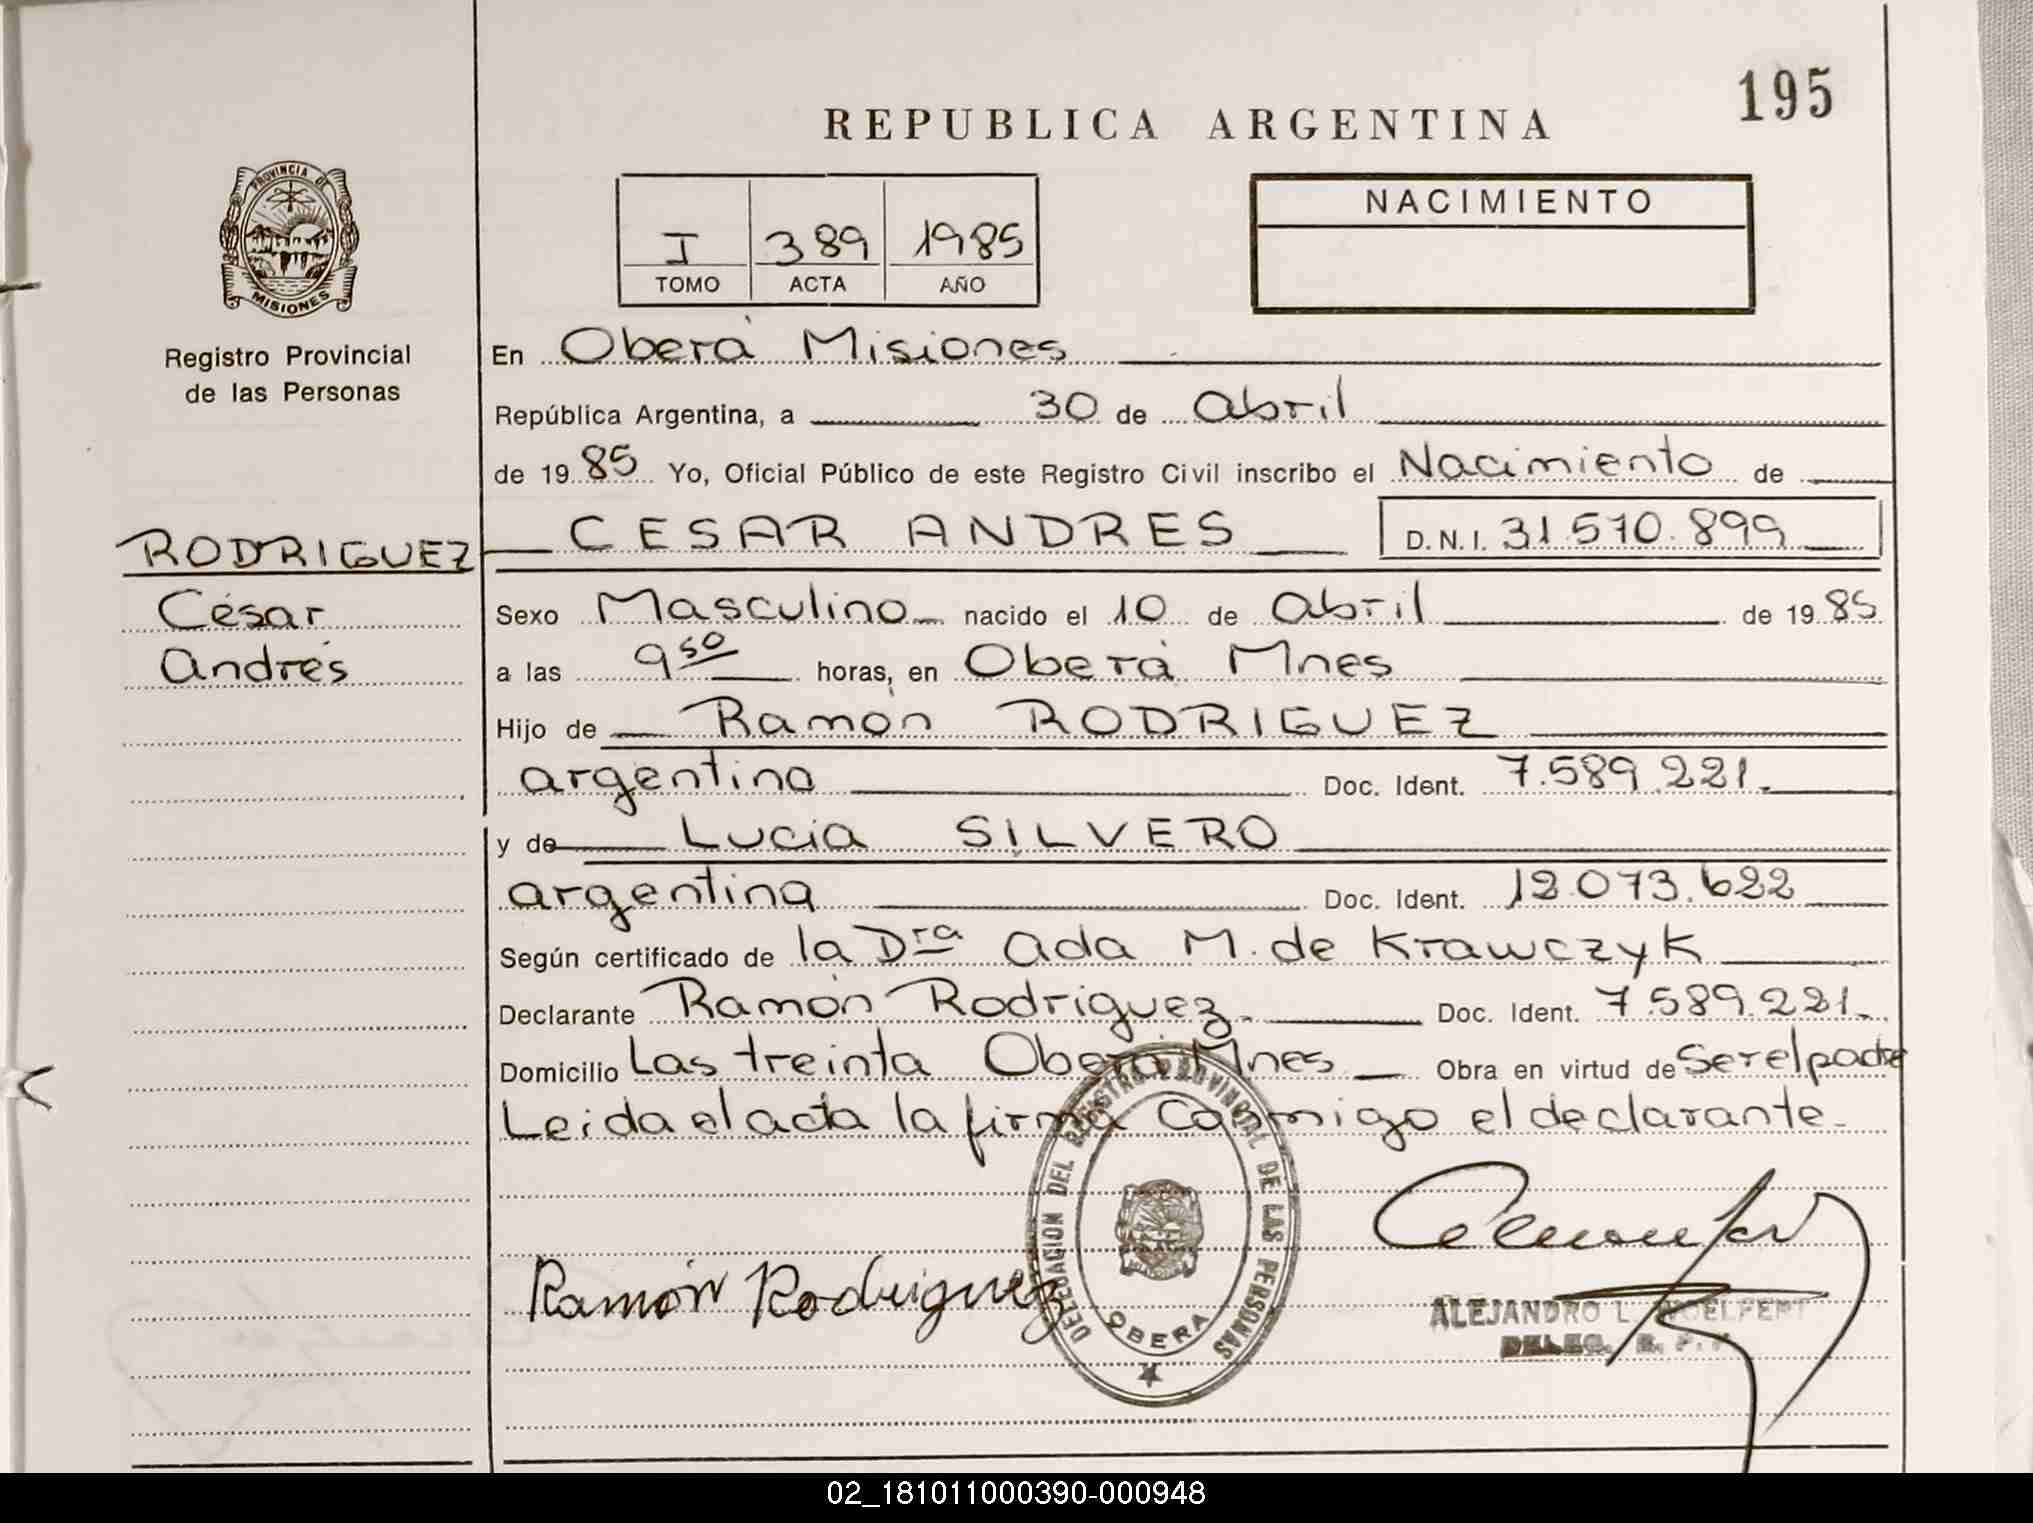 195
REPUBLICA ARGENTINA
PROVINCIA DE
MISIONES
Registro Provincial
de las Personas
I 389 1985
TOMO ACTA AÑO
NACIMIENTO
En Oberá Misiones
República Argentina, a 30 de abril
de 1985 Yo, Oficial Público de este Registro Civil inscribo el Nacimiento de
RODRIGUEZ
César
Andrés
CESAR ANDRES D.N.I. 31.570.899
Sexo Masculino nacido el 10 de abril de 1985
a las 9 50 horas, en Oberá Mnes
Hijo de Ramón RODRIGUEZ
argentino Doc. Ident. 7.589.221.
y de Lucía SILVERO
argentina Doc. Ident. 12.073.622
Según certificado de la Dra Ada M. de Krawczyk
Declarante Ramón Rodríguez. Doc. Ident. 7.589.221.
Domicilio Las treinta Oberá Mnes Obra en virtud de Ser el padre
Leida el acta la firma conmigo el declarante.
Ramón Rodriguez
DELEGACION DEL REGISTRO PROVINCIAL DE LAS PERSONAS
OBERA
ALEJANDRO L.
DELEG. R. P.
02_181011000390-000948